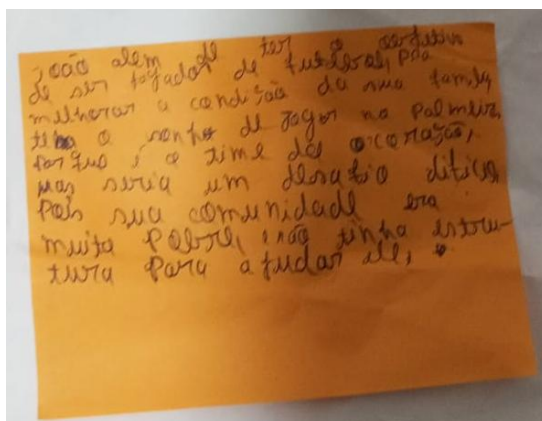 João alem de ter o objetivo
de ser jogador de futebol, pra
melhorar a condição da sua family
tem o sonho de jogar no Palmeira
porque é o time do coração,
mas seria um desafio dificio
Pois sua comunidade era
muita Pobre, e não tinha estru-
tura para ajudar ele,